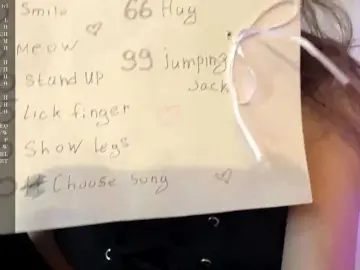 Smile
66 Hug
Meow
99 jumping
Jack
Stand up
Lick finger
Show legs
Choose song